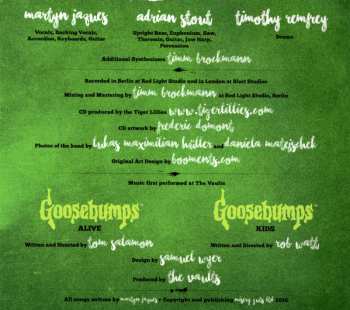 martyn jaques adrian stout timothy remfrey
Vocals, Backing Vocals, Accordion, Keyboards, Guitar
Upright Bass, Euphonium, Saw, Theremin, Guitar, Jaw Harp, Percussion
Drums
Additional Synthesizers timm brockmann
Recorded in Berlin at Red Light Studio and in London at Blot Studios
Mixing and Mastering by timm brockmann at Red Light Studio, Berlin
CD produced by the Tiger Lillies www.tigerlillies.com
CD artwork by frederic domont
Photos of the band by lukas maximilian hüller and daniela matejschek
Original Art Design by booments.com
Music first performed at The Vaults
Goosebumps Goosebumps
ALIVE KIDS
Written and Directed by tom salamon Written and Directed by rob watt
Design by samuel wyer
Produced by the vaults
All songs written by martyn jaques - Copyright and publishing misery guts ltd 2016